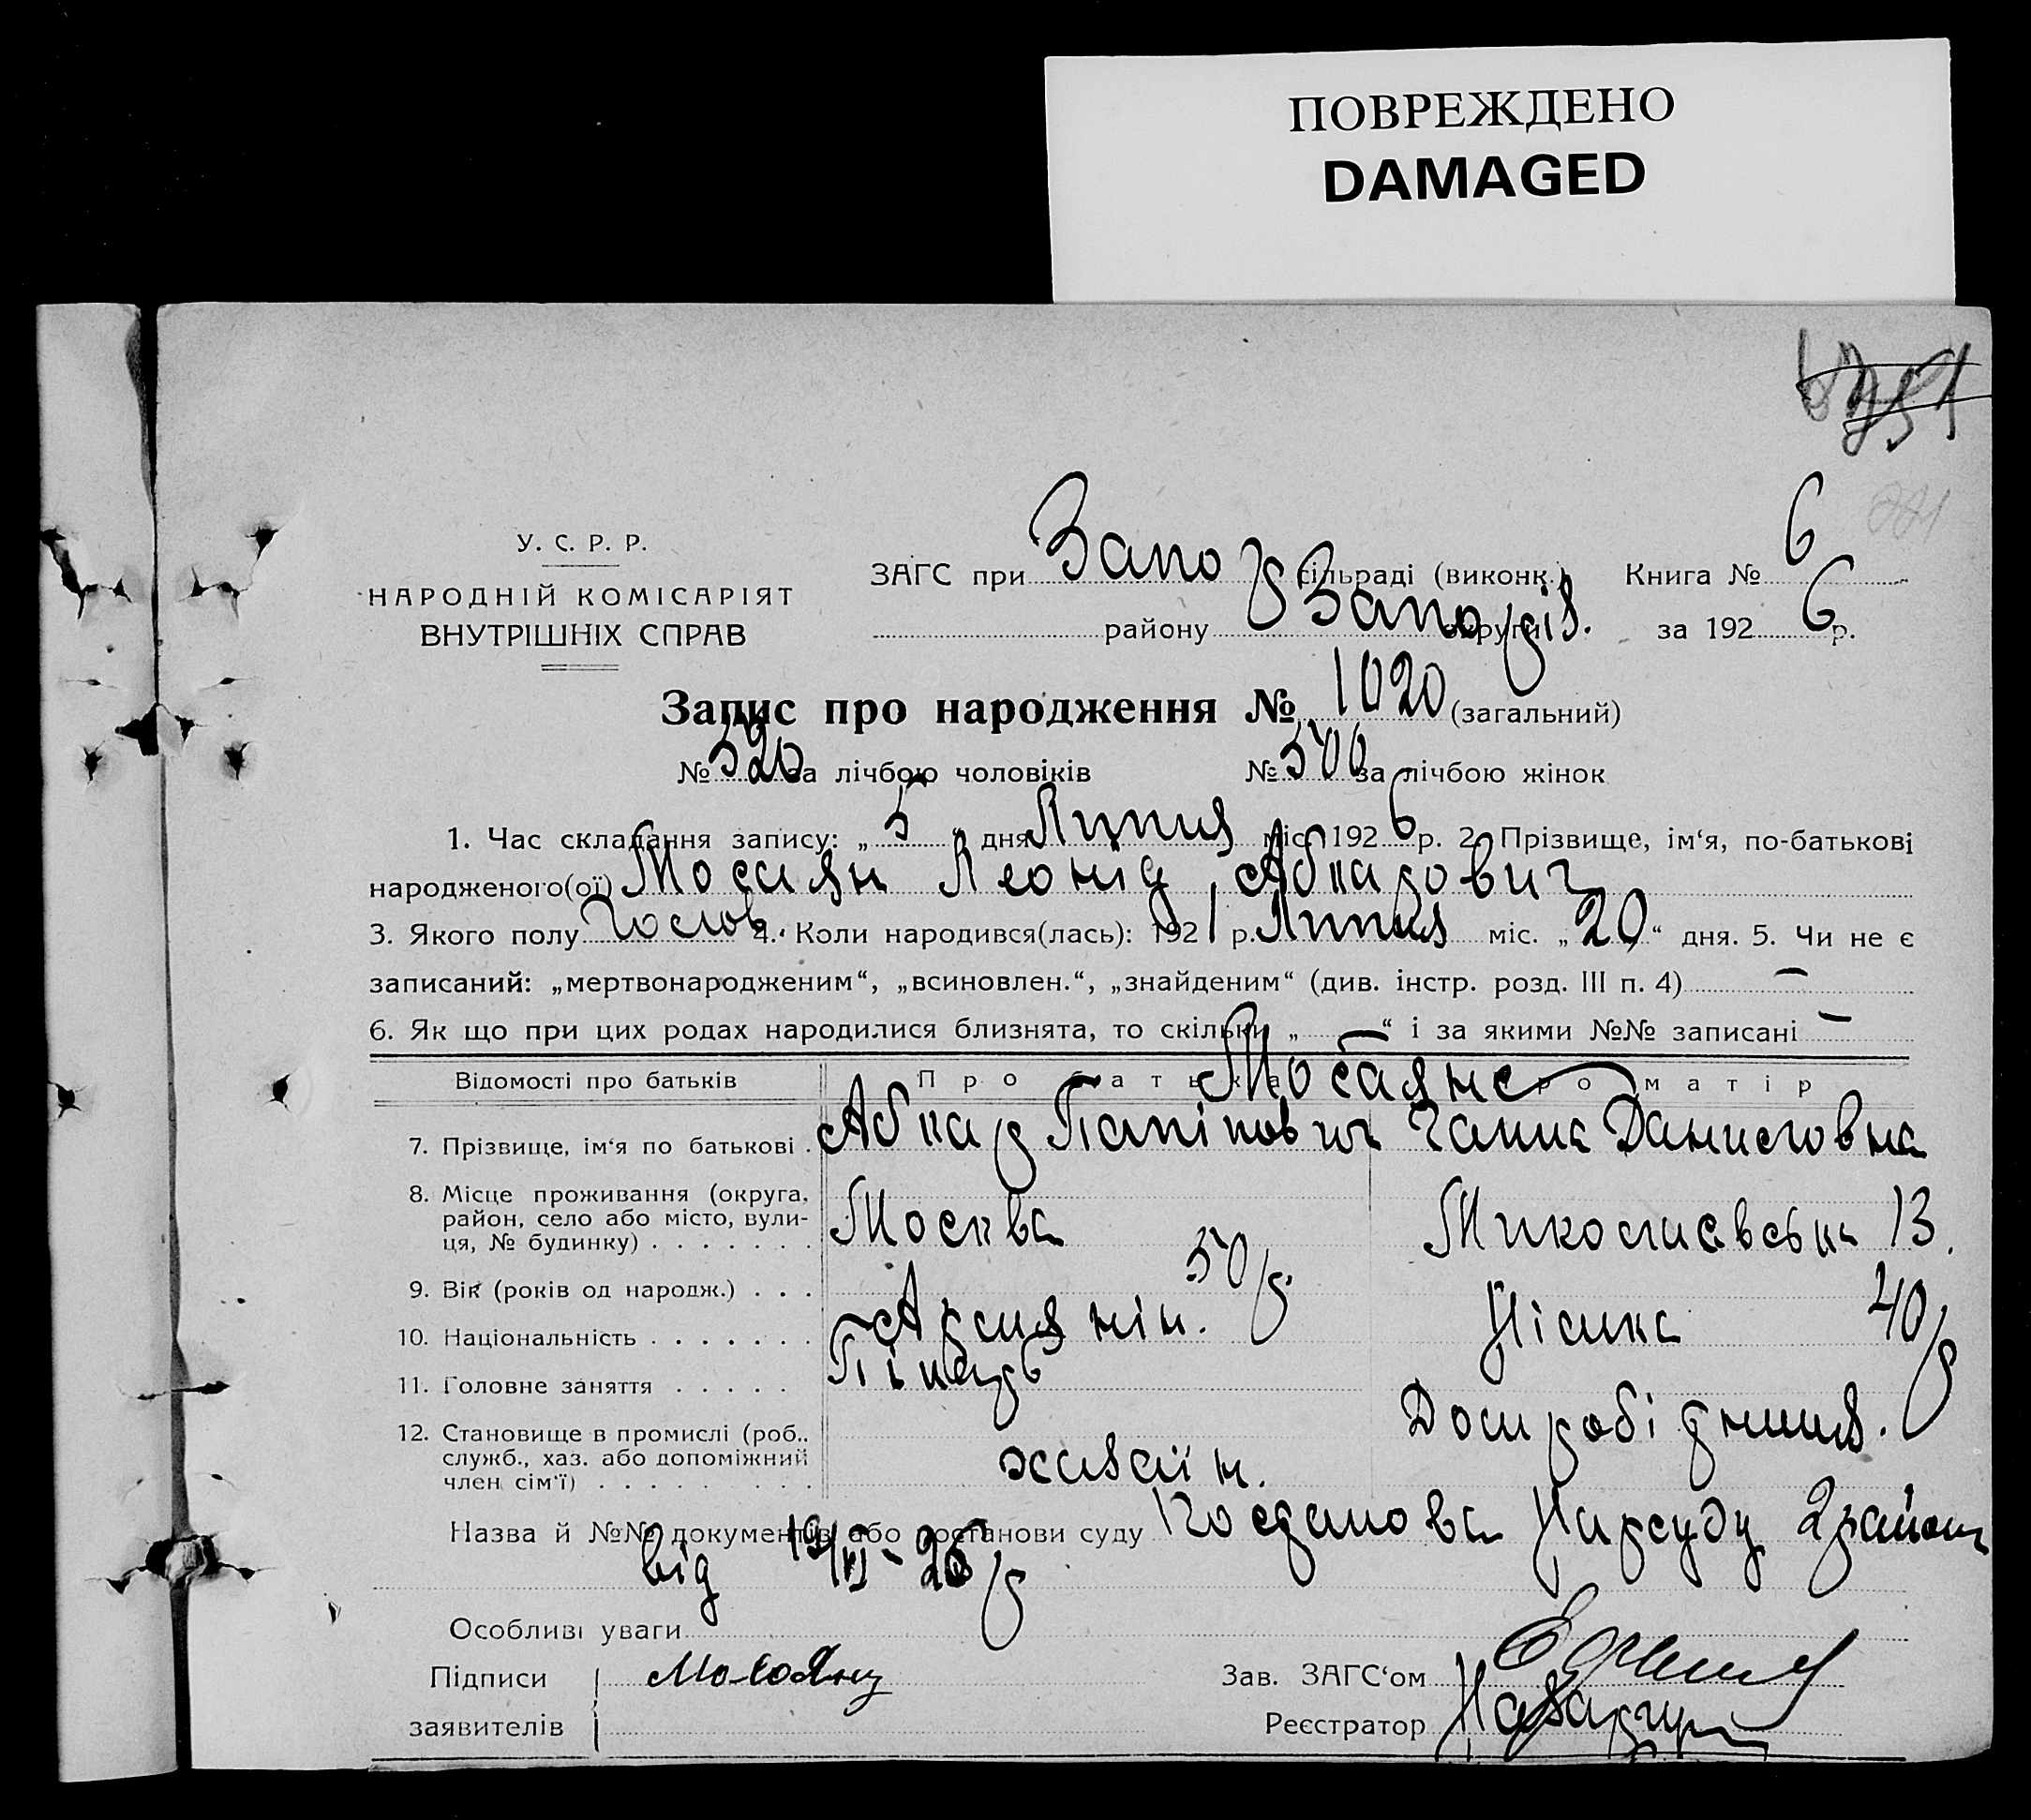 ПОВРЕЖДЕНО
DAMAGED
У. С. Р. Р.
НАРОДНІЙ КОМІСАРІЯТ
ВНУТРІШНІХ СПРАВ
ЗАГС при Запор сільраді (виконк.) Книга № 6
району Запоріз. округи за 1926 р.
Запис про народження № 1020 (загальний)
№ 520 за лічбою чоловіків № 500 за лічбою жінок
1. Час складання запису: „5“ дня Липня міс. 1926 р. 2. Прізвище, ім‘я, по-батькові
народженого(ої) Мосаян Леонід Абкарович
3. Якого полу чолов. 4. Коли народився(лась): 1921 р. Липня міс. „20“ дня. 5. Чи не є
записаний: „мертвонародженим“, „всиновлен.“, „знайденим“ (див. інстр. розд. III п. 4) —
6. Як що при цих родах народилися близнята, то скільки „—“ і за якими №№ записані —
Відомості про батьків Про батька Про матір
Мосаянс
7. Прізвище, ім‘я по батькові . Абкар Папінович Ганна Даниловна
8. Місце проживання (округа,
район, село або місто, вули-
ця, № будинку) . . . . . . . Москва Миколаєвська 13.
9. Вік (років од народж.) . . . 50 р. 40 р
10. Національність . . . . . . . Армянін. Німка
11. Головне заняття . . . . . Пікарь
Домробітниця.
12. Становище в промислі (роб.,
служб., хаз. або допоміжний
член сім‘ї) . . . . . . . . . хазяїн.
Назва й №№ документів або постанови суду Постанова Нарсуду 2 району
від 19/VI-26 р
Особливі уваги
Підписи
заявителів
Зав. ЗАГС‘ом
Реєстратор